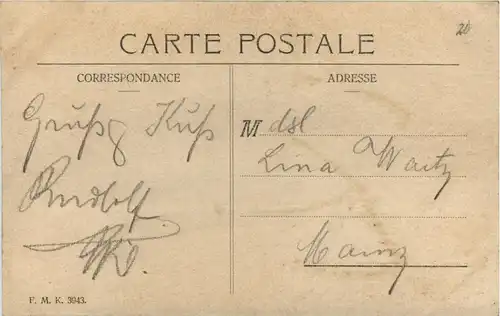 26
CARTE POSTALE
CORRESPONDANCE
Gruß & Kuß
Rudolf
ADRESSE
M dsl
Lina Waitz
Mainz
F. M. K. 3943.